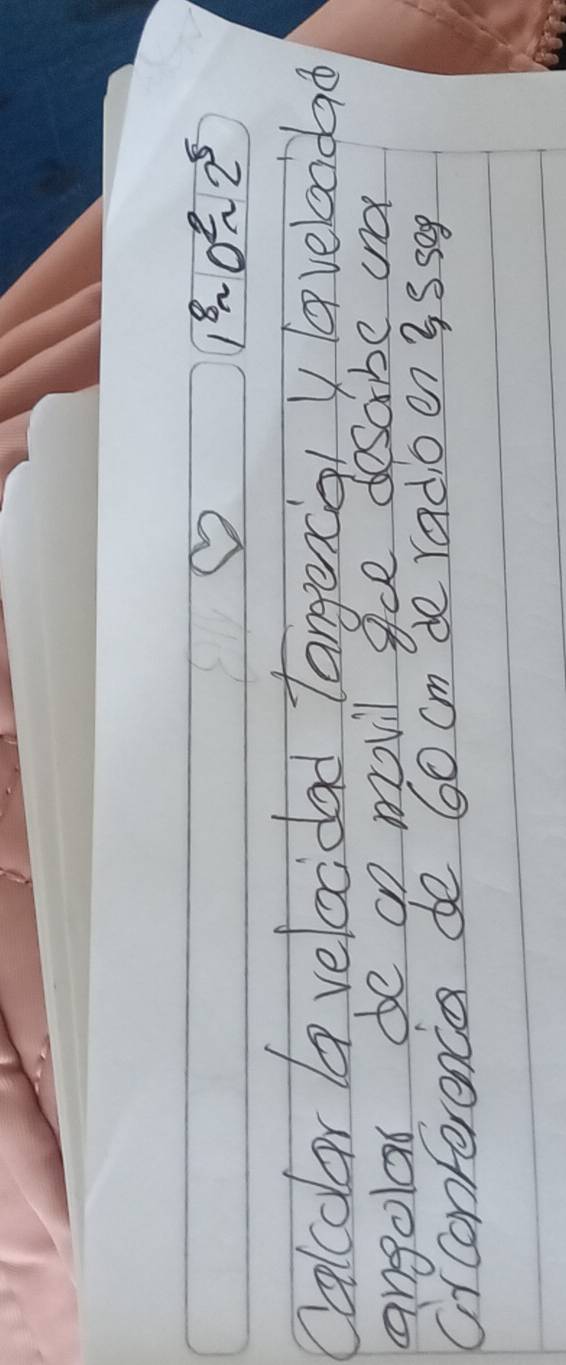 18~02~25
Calcular la velocidad Tangencial y la velocidad
angular de un movil que describe una
circonferencia de 60 cm de radio en seg